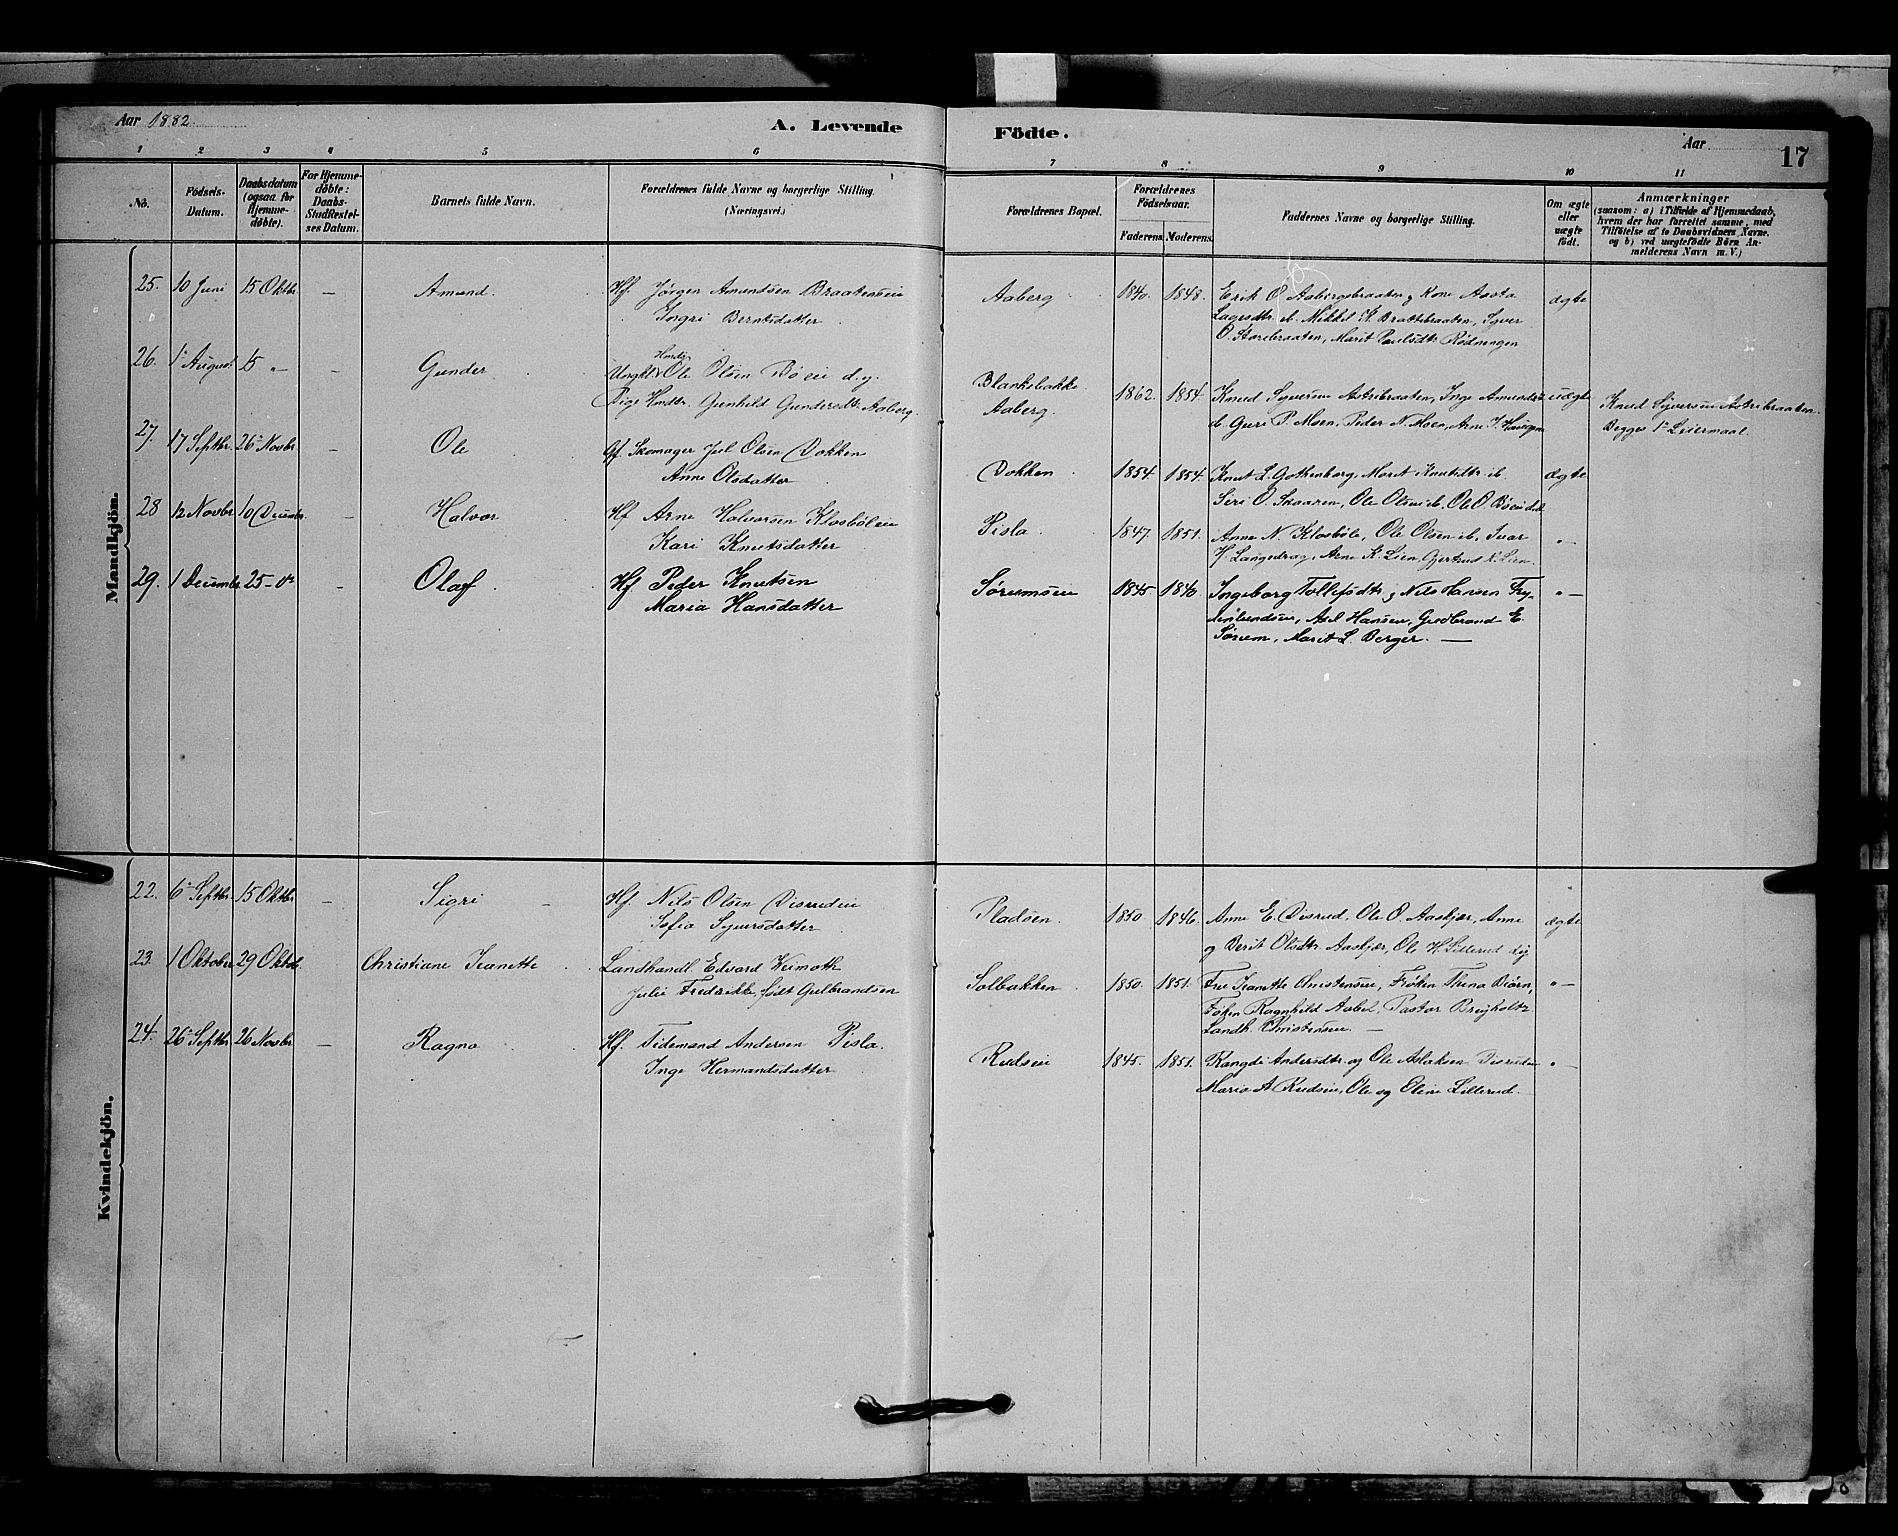 Aar 1882
A. Levende Födte.
Aar
17
1 2 3 4 5 6 7 8 9 10 11
No.
Födsels-Datum.
Daabsdatum (ogsaa for Hjemme-døbte).
For Hjemme-døbte: Daabs-Stadfæstelses Datum.
Barnets fulde Navn.
Forældrenes fulde Navne og borgerlige Stilling. (Næringsvei.)
Forældrenes Bopæl.
Forældrenes Fødselsaar.
Faderens. Moderens.
Faddernes Navne og borgerlige Stilling.
Om ægte eller uægte født.
Anmærkninger
(saasom: a) i Tilfælde af Hjemmedaab,
hvem der har forrettet samme, med
Tilføielse af to Daabsvidners Navne.
og b) ved uægtefødte Börn An-
melderens Navn m. V.)
Mandkjön.
25. 10 Juni 15 Oktbr. — Amund. Hf. Jørgen Amundsen Braateneie Aaberg 1840. 1848. Erik O. Aabergsbraaten og Kone Aasta ægte
Ingri Berntsdatter Mikkel K. Brattebraaten, Syver
O. Storebraaten, Marit Paulsdtr Rødningen
26. 1 August 15 " — Gunder Ungkl. Hmds. Ole Olsen Bøeie d. y. Blankebakke 1862. 1854 Knud Syversen Astribraaten, Inge Amundsdtr uægte Knud Syversen Astribraaten.
Pige Hmdtr. Gunhild Gundersdtr. Aaberg. Aaberg. ib. Guri P. Moen, Peder N. Moen, Arne J. Begges 1ste Leiermaal.
27. 17 Septbr. 26 Novbr — Ole Gf. Skomager Jul Olsen Dokken Dokken 1854. 1854. Knut L. Gothenborg, Marit Knutsdtr ib. ægte
Anne Olsdatter Siri O. Skaaren, Ole Olsen ib, Ole O. Bøeie
28 12 Novbr 10 Decembr. — Halvor Hf Arne Halvorsen Klosbøleie Pisla 1847. 1851. Anne N. Klosbøle, Ole Olsen ib. Ivar "—
Kari Knutsdatter H. Langedrag, Arne K. Lien, Gjertrud K. Lien.
29. 1 December 25 — — Olaf Hf. Peder Knutsen Sørumseie 1845 1840. Ingeborg Tollefsdtr, og Nils Hansen "—
Maria Hansdatter Axel Hansen, Gudbrand E.
Sørum, Marit L. Berger. —
Kvindekjön.
22. 6 Septbr. 15 Oktbr — Sigri Hf. Nils Olsen Disrudeie Pladsen. 1850 1846. Anne E. Disrud, Ole O. Aaskjær, Anne ægte
Sofia Syversdatter og Berit Olsdtr Aaskjær, Ole H. Lillerud
23. 1 Oktober 29 Oktob. — Christiane Jeanette Landhandl Edvard Weimoth Solbakken 1850. 1851. Fru Jeanette Christensen, Frøken Thina Biørn, "—
Julie Fredrikke, født Gulbrandsen Frøken Ragnhild Aabel, Pastor Breyholtz
Landh. Christensen. —
24. 26 Septbr 26 Novbr — Ragna Hf. Tidemand Andersen Pisla. Rudseie 1845. 1851. Rangdi Andersdtr. og Ole Aslaksen Disrudeie "—
Inge Hermandsdatter Maria A. Rudseie, Ole og Eline Lillerud.